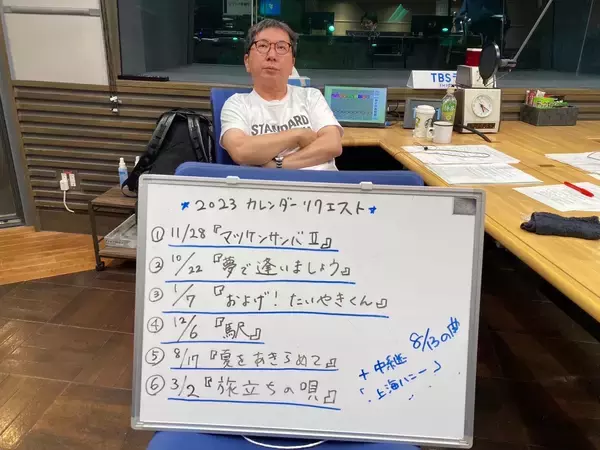 TBSラ
STANDARD
★2023 カレンダーリクエスト★
① 11/28『マツケンサンバⅡ』
② 10/22『夢で逢いましょう』
③ 1/7『およげ!たいやきくん』
④ 12/6『駅』
⑤ 8/17『夏をあきらめて』
⑥ 3/2『旅立ちの唄』
8/13の曲
+中継
「上海ハニー」